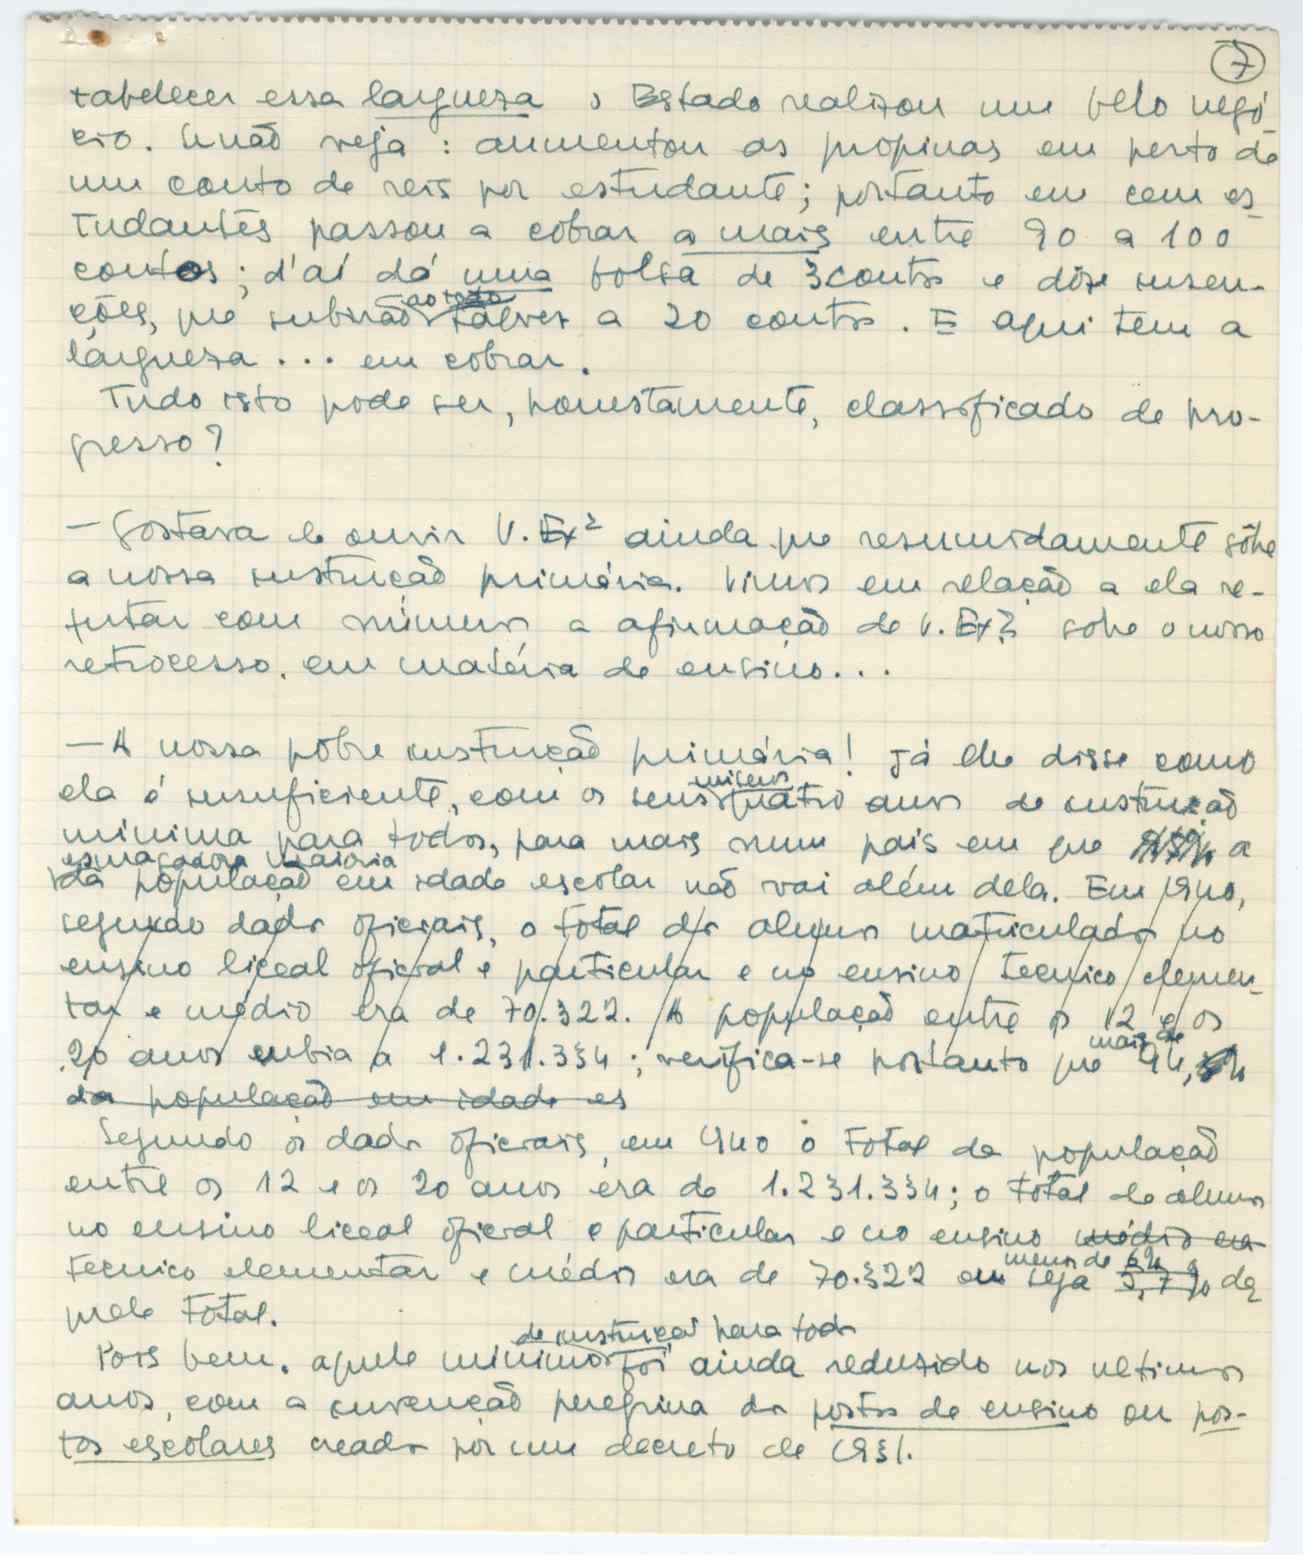 7
tabelecer essa largueza o Estado realizou um belo negó-
cio. Senão veja: aumentou as propinas em perto de
um conto de reis por estudante; portanto em cem es-
tudantes passou a cobrar a mais entre 90 a 100
contos; d'aí dá uma bolsa de 3 contos e dôze insen-
ao todo
ções, que subirão talvez a 20 contos. E aqui tem a
largueza... em cobrar.
Tudo isto pode ser, honestamente, classificado de pro-
gresso?
— Gostava de ouvir V. Exª ainda que resumidamente sôbre
a nossa instrução primária. Vimos em relação a ela re-
futar com números a afirmação de V. Exª sobre o nosso
retrocesso, em matéria de ensino...
— A nossa pobre instrução primária! Já lhe disse como
míseros
ela é insuficiente, com os seus quatro anos de instrução
mínima para todos, para mais num país em que a
esmagadora maioria
da população em idade escolar não vai além dela. Em 1940,
segundo dados oficiais, o total dos alunos matriculados no
ensino liceal oficial e particular e no ensino tecnico elemen-
tar e médio era de 70.322. A população entre os 12 e os
mais de
20 anos subia a 1.231.334; verifica-se portanto que 94,
da população em idade es
Segundo os dados oficiais, em 1940 o total da população
entre os 12 e os 20 anos era de 1.231.334; o total de alunos
no ensino liceal oficial e particular e no ensino médio era
menos de 6%
tecnico elementar e médio era de 70.322 ou seja 5,7% da-
quele total.
de instrução para todos
Pois bem, aquele minimo foi ainda reduzido nos ultimos
anos, com a invenção peregrina dos postos de ensino ou pos-
tos escolares creados por um decreto de 1931.